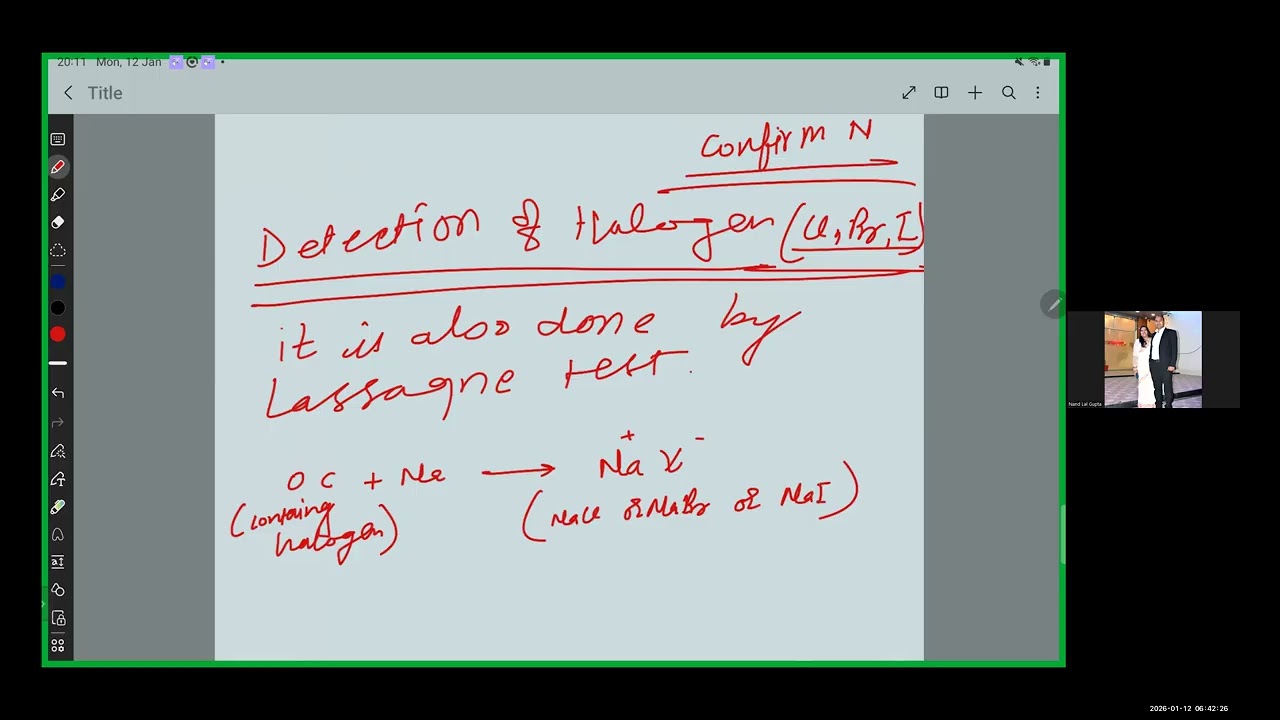 20:11 Mon, 12 Jan
Title
Confirm N
Detection of Halogen (Cl, Br, I)
it is also done by
Lassagne test.
O C + Na → Na⁺ X⁻
(containg
halogen)
(NaCl or NaBr or NaI)
Nand Lal Gupta
2026-01-12 06:42:26